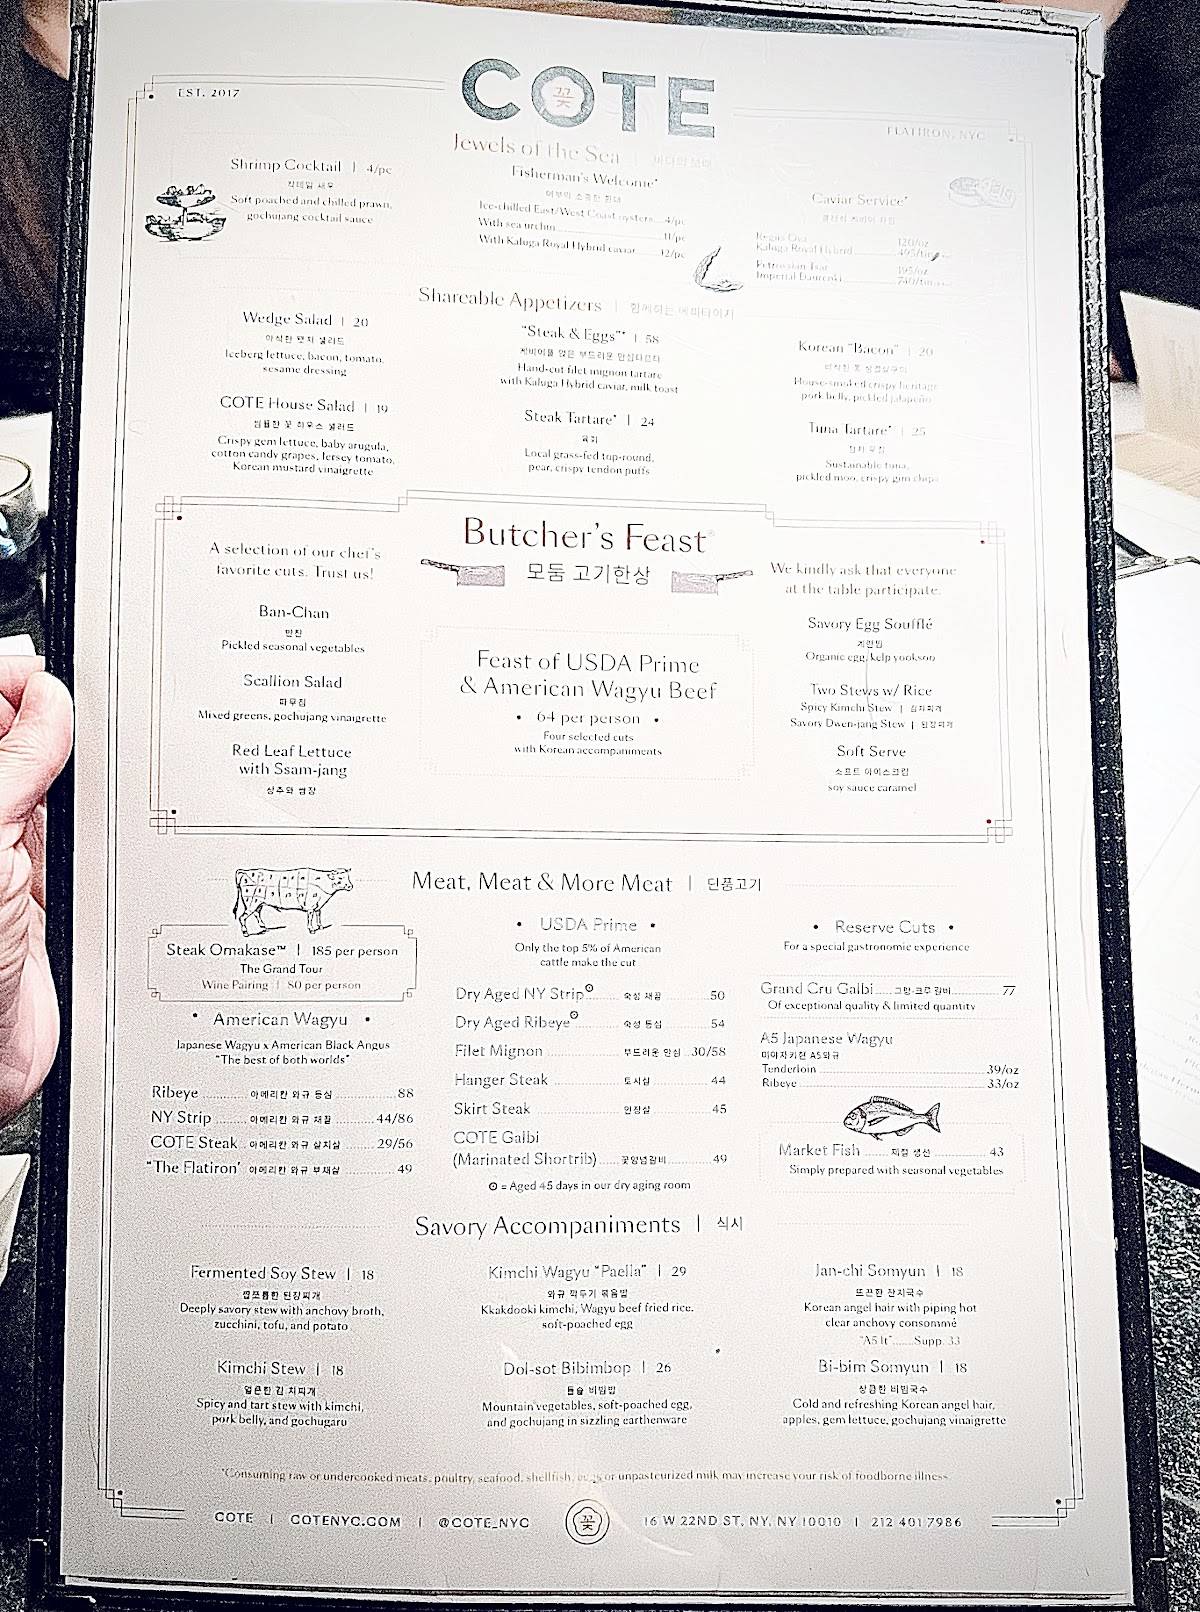 EST. 2017
COTE
꽃
FLATIRON, NYC
Jewels of the Sea |
Shrimp Cocktail | 4/pc
칵테일 새우
Soft poached and chilled prawn,
gochujang cocktail sauce
Fisherman's Welcome*
Ice-chilled East/West Coast oysters....4/pc
With sea urchin....11/pc
With Kaluga Royal Hybrid caviar....12/pc
Caviar Service*
Regiis Ova 120/oz
Kaluga Royal Hybrid....495/tin
Petrossian Tsar 195/oz
Imperial Daurenki....740/tin
Shareable Appetizers | 함께하는 에피타이저
Wedge Salad | 20
아삭한 웻지 샐러드
Iceberg lettuce, bacon, tomato,
sesame dressing
COTE House Salad | 19
심플한 꽃 하우스 샐러드
Crispy gem lettuce, baby arugula,
cotton candy grapes, Jersey tomato,
Korean mustard vinaigrette
"Steak & Eggs"* | 58
케비어를 얹은 부드러운 안심타르타
Hand-cut filet mignon tartare
with Kaluga Hybrid caviar, milk toast
Steak Tartare* | 24
육회
Local grass-fed top-round,
pear, crispy tendon puffs
Korean "Bacon" | 20
House-smoked crispy heritage
pork belly, pickled jalapeño
Tuna Tartare* | 25
참치 무침
Sustainable tuna,
pickled moo, crispy gim chips
Butcher's Feast®
모둠 고기한상
A selection of our chef's
favorite cuts. Trust us!
Ban-Chan
반찬
Pickled seasonal vegetables
Scallion Salad
파무침
Mixed greens, gochujang vinaigrette
Red Leaf Lettuce
with Ssam-jang
상추와 쌈장
Feast of USDA Prime
& American Wagyu Beef
• 64 per person •
Four selected cuts
with Korean accompaniments
We kindly ask that everyone
at the table participate.
Savory Egg Soufflé
계란찜
Organic egg, kelp yooksoo
Two Stews w/ Rice
Spicy Kimchi Stew | 김치찌개
Savory Dwen-jang Stew | 된장찌개
Soft Serve
소프트 아이스크림
soy sauce caramel
Meat, Meat & More Meat | 단품고기
Steak Omakase™ | 185 per person
The Grand Tour
Wine Pairing | 80 per person
• American Wagyu •
Japanese Wagyu x American Black Angus
"The best of both worlds"
Ribeye....아메리칸 와규 등심....88
NY Strip....아메리칸 와규 채끝....44/86
COTE Steak..아메리칸 와규 살치살....29/56
"The Flatiron" 아메리칸 와규 부채살....49
• USDA Prime •
Only the top 5% of American
cattle make the cut
Dry Aged NY Strip⊙....숙성 채끝....50
Dry Aged Ribeye⊙....숙성 등심....54
Filet Mignon....부드러운 안심..30/58
Hanger Steak....토시살....44
Skirt Steak....안창살....45
COTE Galbi
(Marinated Shortrib)....꽃양념갈비....49
⊙ = Aged 45 days in our dry aging room
• Reserve Cuts •
For a special gastronomic experience
Grand Cru Galbi....그랑-크루 갈비....77
Of exceptional quality & limited quantity
A5 Japanese Wagyu
미야자키현 A5와규
Tenderloin....39/oz
Ribeye....33/oz
Market Fish....제철 생선....43
Simply prepared with seasonal vegetables
Savory Accompaniments | 식사
Fermented Soy Stew | 18
짭쪼름한 된장찌개
Deeply savory stew with anchovy broth,
zucchini, tofu, and potato
Kimchi Stew | 18
얼큰한 김치찌개
Spicy and tart stew with kimchi,
pork belly, and gochugaru
Kimchi Wagyu "Paella" | 29
와규 깍두기 볶음밥
Kkakdooki kimchi, Wagyu beef fried rice,
soft-poached egg
Dol-sot Bibimbop | 26
돌솥 비빔밥
Mountain vegetables, soft-poached egg,
and gochujang in sizzling earthenware
Jan-chi Somyun | 18
뜨끈한 잔치국수
Korean angel hair with piping hot
clear anchovy consommé
"A5 It"....Supp. 33
Bi-bim Somyun | 18
상큼한 비빔국수
Cold and refreshing Korean angel hair,
apples, gem lettuce, gochujang vinaigrette
*Consuming raw or undercooked meats, poultry, seafood, shellfish, eggs or unpasteurized milk may increase your risk of foodborne illness.
COTE | COTENYC.COM | @COTE_NYC 꽃 16 W 22ND ST, NY, NY 10010 | 212 401 7986